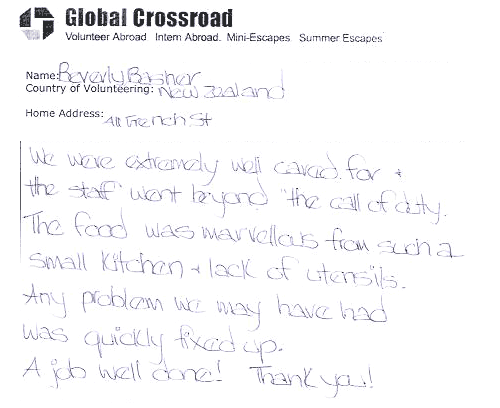 Global Crossroad
Volunteer Abroad Intern Abroad. Mini-Escapes Summer Escapes
Name: Beverly Basher
Country of Volunteering: New Zealand
Home Address: French St
We were extremely well cared for +
the staff went beyond "the call of duty.
The food was marvellous from such a
small kitchen + lack of utensils.
Any problem we may have had
was quickly fixed up.
A job well done! Thank you!